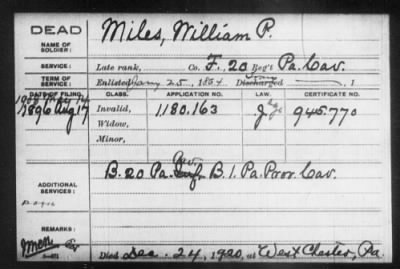 DEAD
NAME OF SOLDIER: Miles, William P.
SERVICE: Late rank, Co. F. 20 Reg't Pa. Cav.
TERM OF SERVICE: Enlisted Jany 25, 1864 Discharged 1
DATE OF FILING. CLASS. APPLICATION NO. LAW. CERTIFICATE NO.
1908 May 14
1896 Aug 17 Invalid, 1180.163 945.770
Widow,
Minor,
Cav.
ADDITIONAL SERVICES: B. 20 Pa. B. 1. Pa. Prov. Cav.
REMARKS:
Died Dec. 24, 1920, at West Chester, Pa.